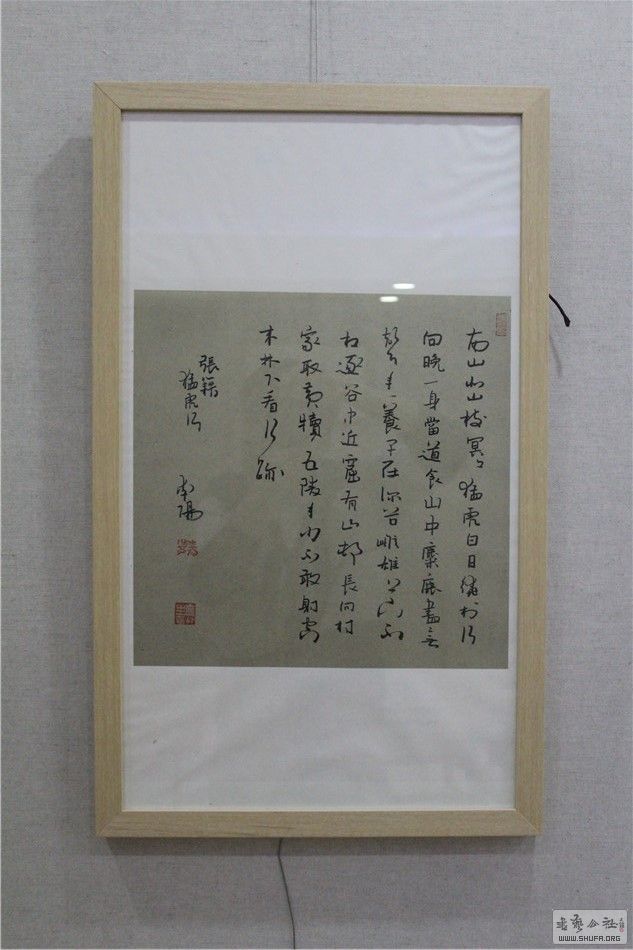 南山北山樹冥々猛虎白日繞村行
向晚一身當道食山中麋鹿盡無
聲年々養子在深谷雌雄上下不
相逐谷中近窟有山村長向村
家取黃犢五陵年少不敢射空
來林下看行跡
張籍
猛虎行
南陽
書藝公社
WWW.SHUFA.ORG